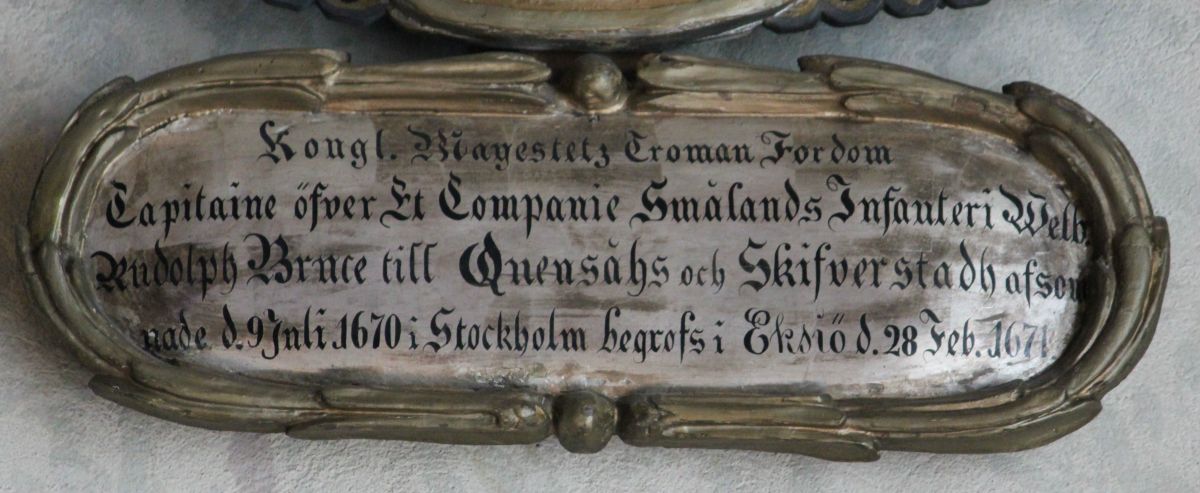 Kongl. Mayestetz Troman Fordom
Capitaine öfver Et Companie Smålands Infanteri Welb.
Rudolph Bruce till Quensåhs och Skifverstadh afsom
nade d. 9 Juli. 1670 i Stockholm begrofs i Eksiö d. 28 Feb. 1671